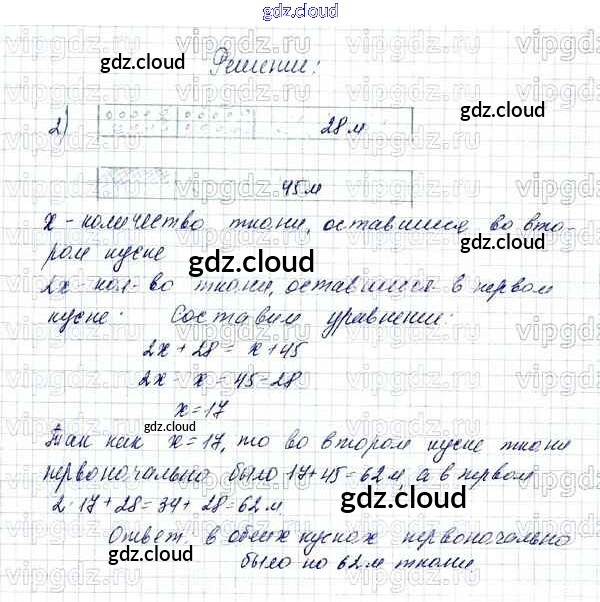 gdz.cloud
Решение:
gdz.cloud
2) 28 м
45 м
x - количество ткани, оставшиеся во вто-
ром куске
2x - кол-во ткани, оставшиеся в первом
куске. Составим уравнение:
2x + 28 = x + 45
2x - x = 45 - 28
x = 17
Так как x = 17, то во втором куске ткани
первоначально было 17 + 45 = 62 м, а в первом
2 · 17 + 28 = 34 + 28 = 62 м.
Ответ: в обеих кусках первоначально
было по 62 м ткани.
gdz.cloud
gdz.cloud
gdz.cloud
gdz.cloud
gdz.cloud
gdz.cloud
gdz.cloud
vipgdz.ru